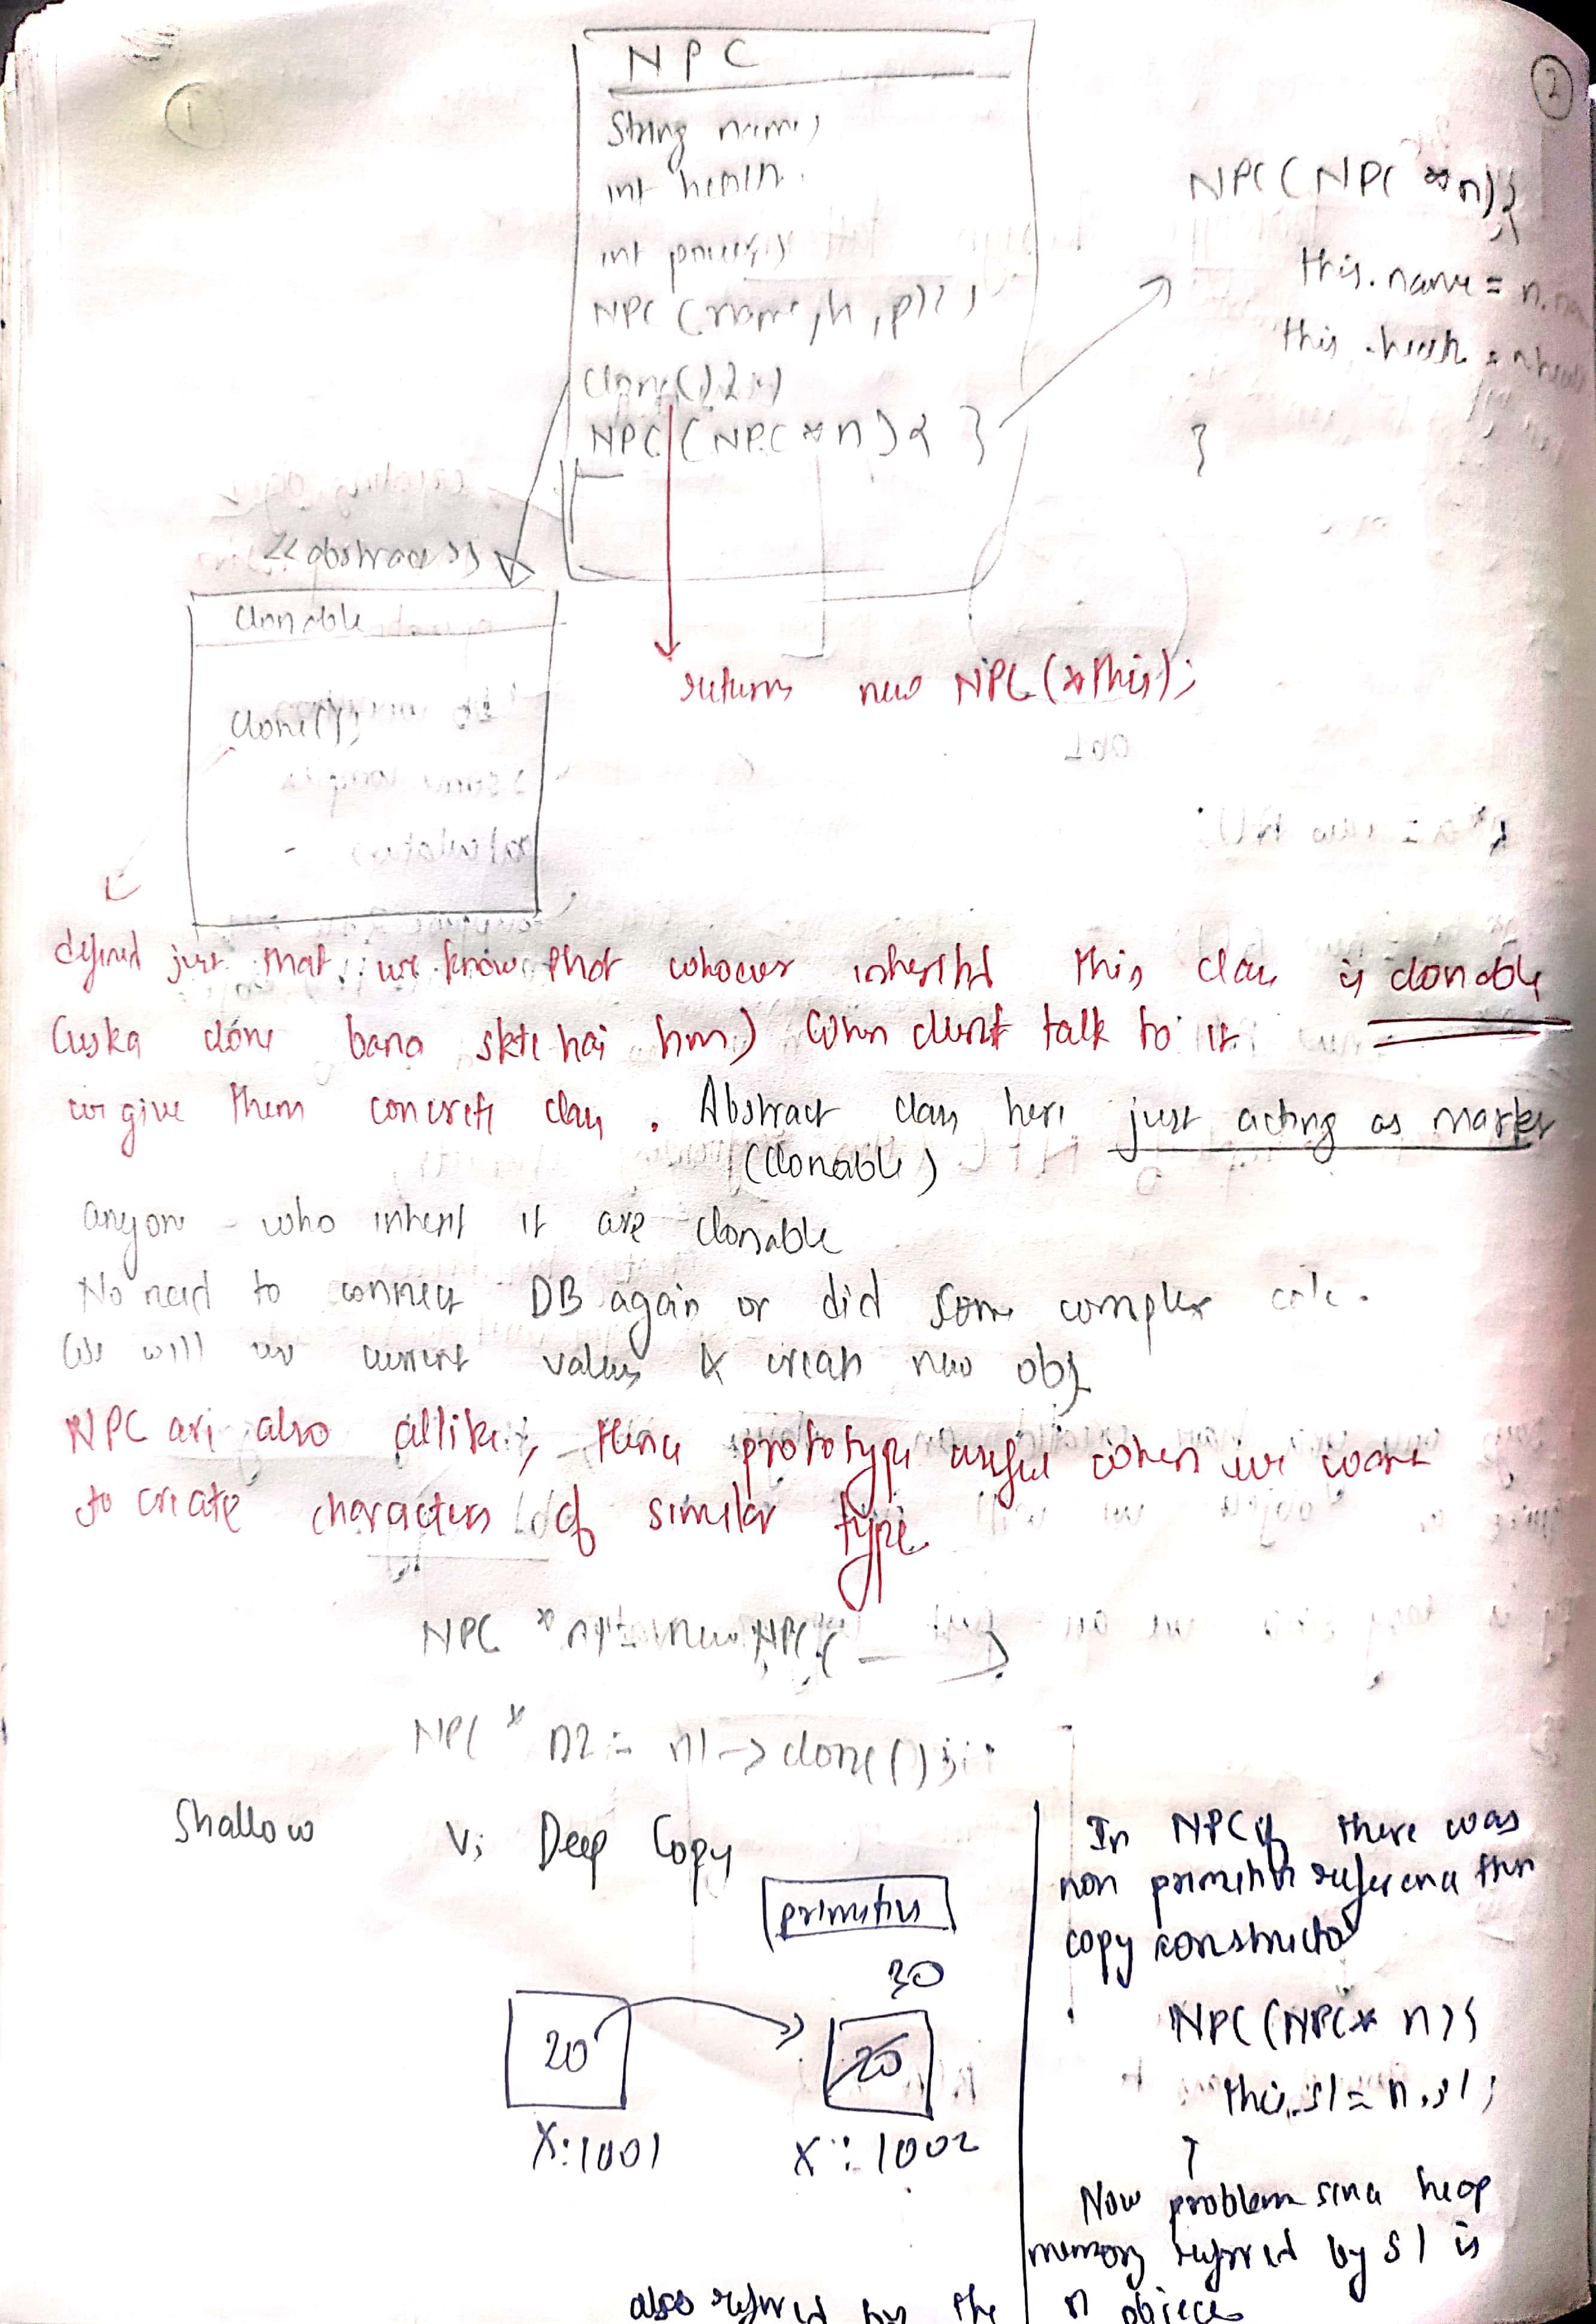 1
2
NPC
String name;
int health.
int power;
NPC (name, h, p) { }
Clone() { }
NPC (NPC *n) { }
NPC (NPC *n) {
this.name = n.na
this.health = n.healt
}
<<abstract>>
Clonable
Clone();
returns new NPC (*this);
defined just that we know that whoever inherited this class is clonable
(uska clone bana skte hai hm) when client talk to it
we give them concrete class. Abstract class here just acting as marker
(Clonable)
anyone who inherit it are clonable
No need to connect DB again or did some complex calc.
We will use current values & create new obj
NPC are also allike, hence prototype useful when we want
to create characters of similar type.
NPC *n1 = new NPC ( )
NPC * n2 = n1 -> clone();
Shallow Vs Deep Copy
primitive
30
20
20
X:1001
X:1002
In NPC if there was
non primitive reference then
copy constructor
NPC (NPC* n) {
this.s1 = n.s1;
Now problem since heap
memory referred by s1 is
also referred by the n object